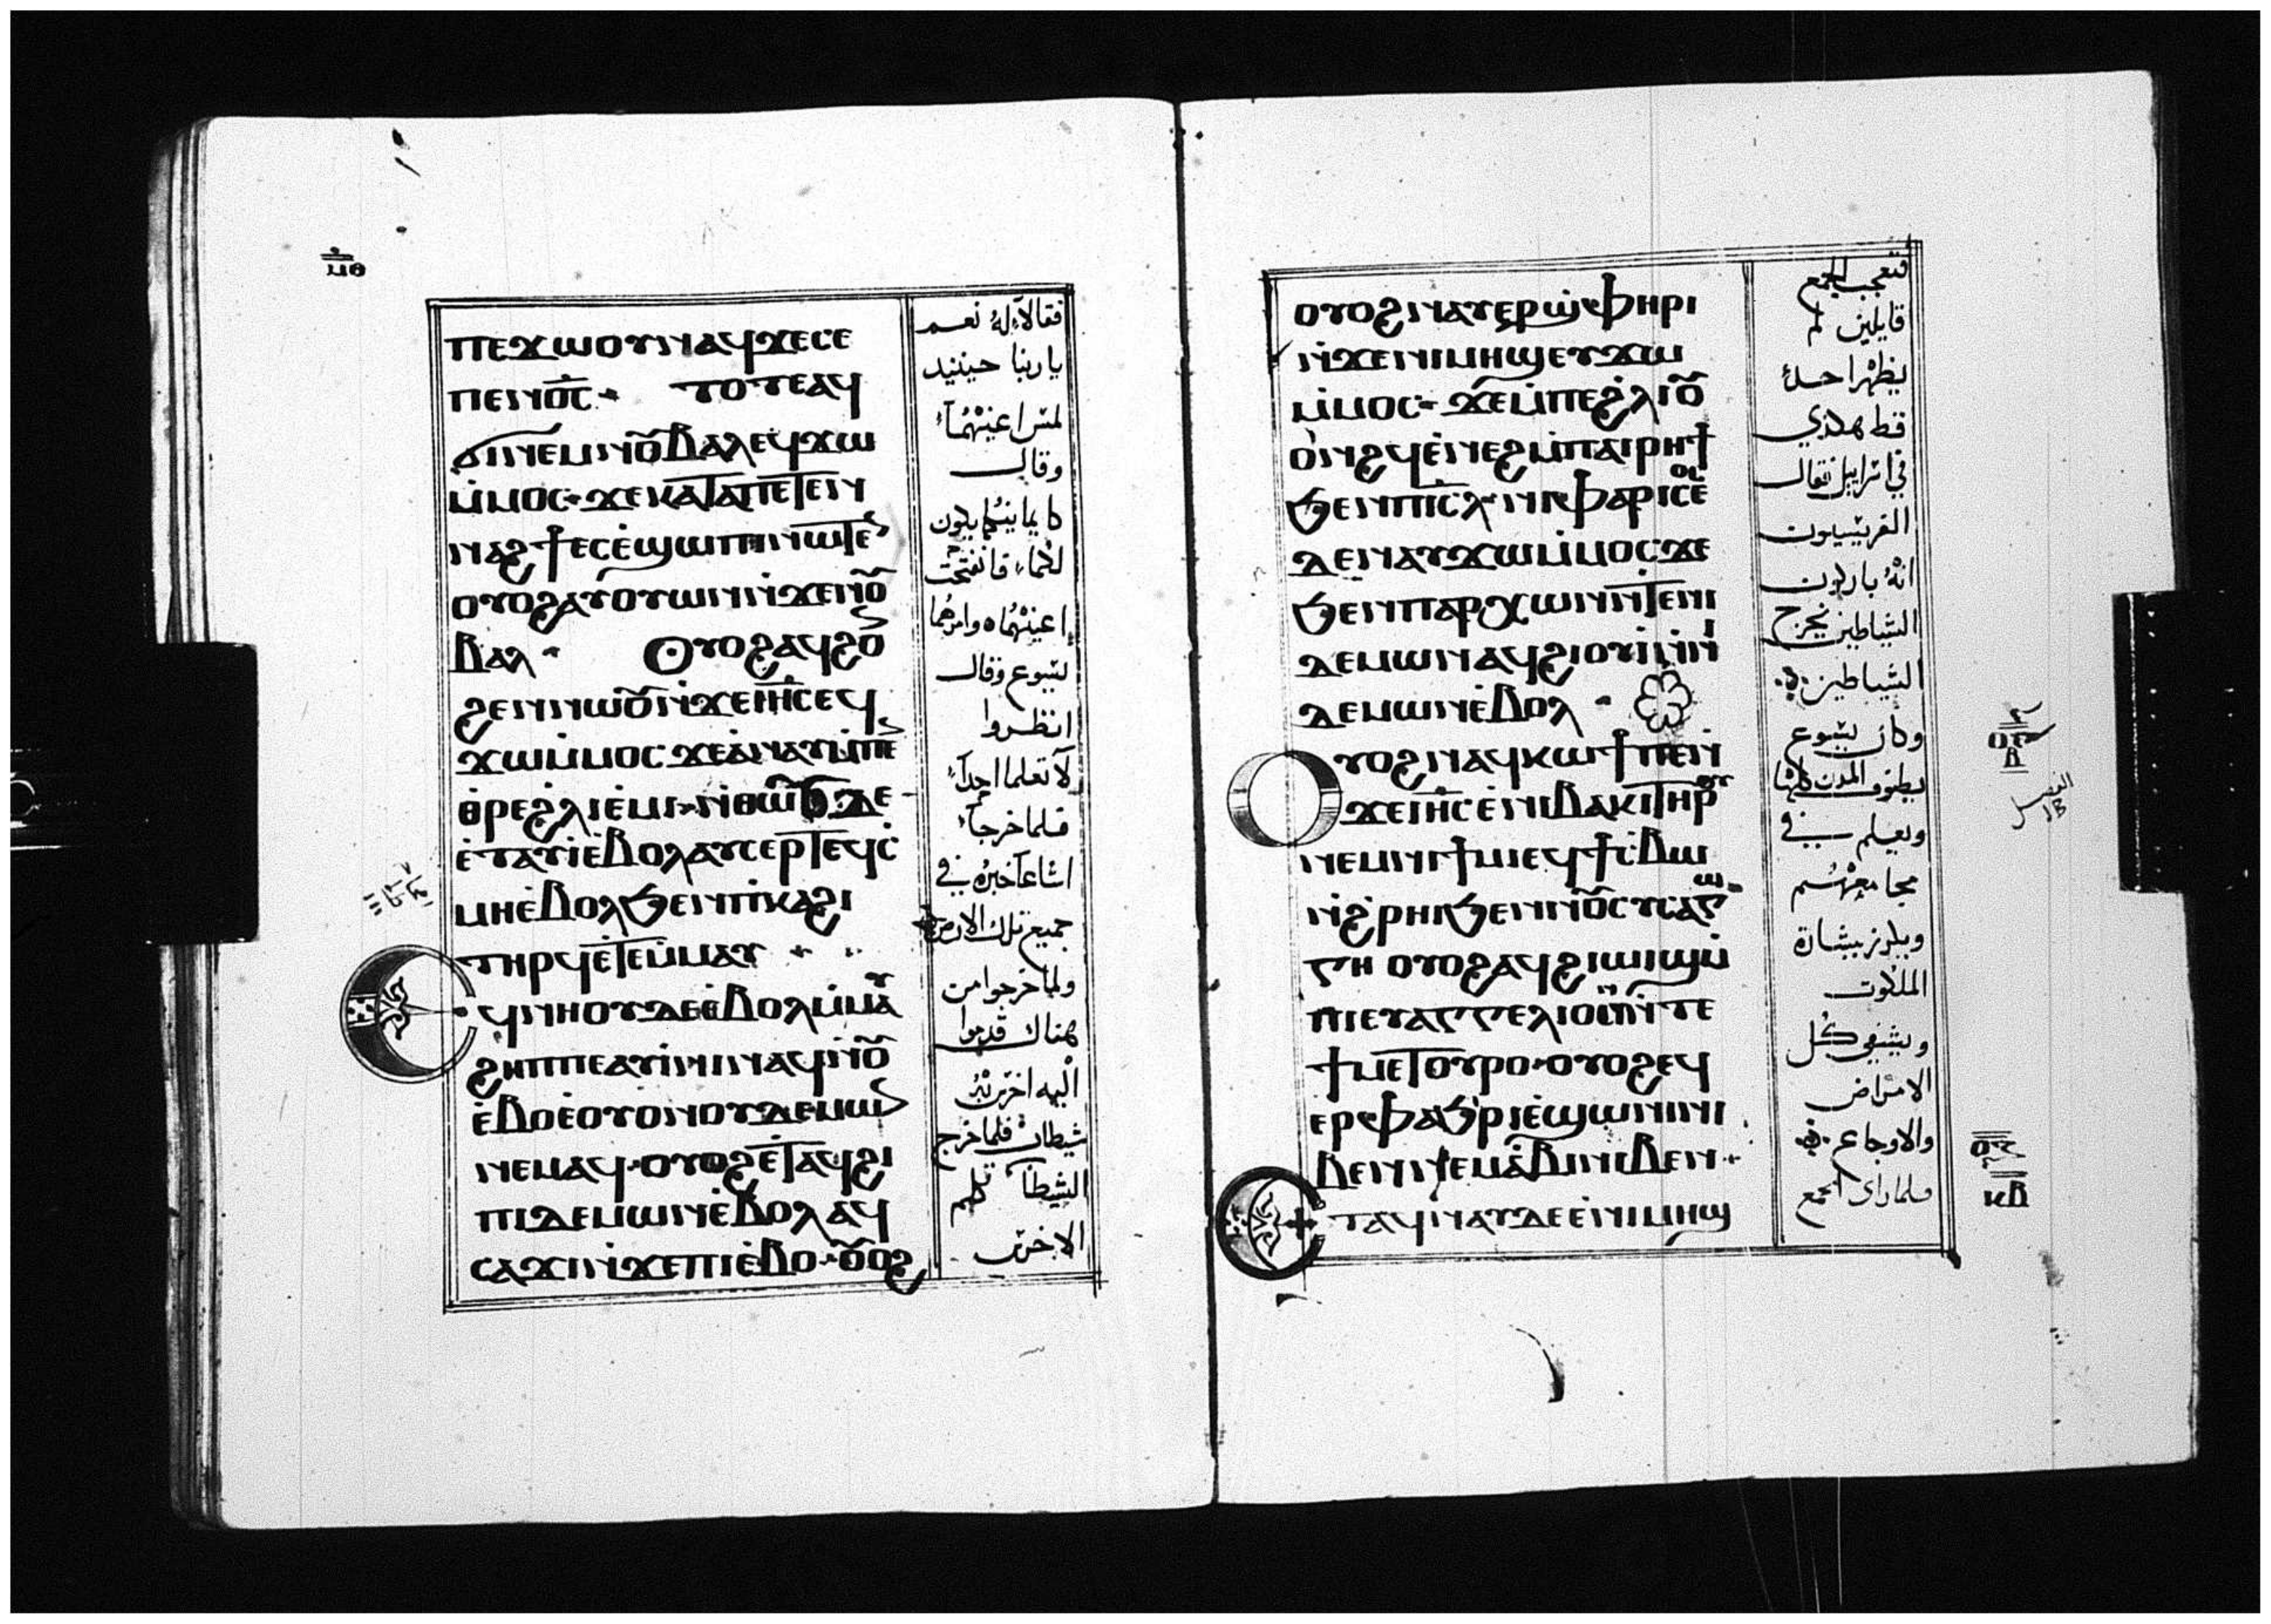 ⲙ̅ⲑ̅
ⲡⲉϫⲱⲟⲩⲛⲁϥϫⲉⲥⲉ
ⲡⲉⲛⲟ̅ⲥ̅ ⲧⲟⲧⲉⲁϥ
ϭⲓⲛⲉⲙⲛⲟⲩ̅ⲃⲁⲗⲉϥϫⲱ
ⲙ̀ⲙⲟⲥ ϫⲉⲕⲁⲧⲁⲡⲉⲧⲉⲛ
ⲛⲁϩϯⲉⲥⲉ̀ϣⲱⲡⲓⲛⲱⲧⲉⲛ
ⲟⲩⲟϩⲁⲩⲟⲩⲱⲛⲛ̀ϫⲉⲛⲟⲩ̅
ⲃⲁⲗ Ⲟⲩⲟϩⲁϥϩⲟⲛ
ϩⲉⲛⲛⲱⲟⲩ̅ⲛ̀ϫⲉⲓⲏ̅ⲥ̅ⲉϥ
ϫⲱⲙ̀ⲙⲟⲥ ϫⲉⲁ̀ⲛⲁⲩⲙ̀ⲡⲉⲛ
ⲑ̀ⲣⲉϩⲗⲓⲉ̀ⲙⲓ ⲛ̀ⲑⲱⲟⲩ̅ ⲇⲉ
ⲉ̀ⲧⲁⲩⲓ̀ⲉ̀ⲃⲟⲗⲁⲩⲥⲉⲣⲧⲉϥⲥ̀
ⲙⲏⲉ̀ⲃⲟⲗϧⲉⲛⲡ̀ⲕⲁϩⲓ
ⲧⲏⲣϥⲉ̀ⲧⲉⲙ̀ⲙⲁⲩ
Ⲉϥⲛⲏⲟⲩⲇⲉⲉ̀ⲃⲟⲗⲙ̀ⲙⲁⲩ
ϩⲏⲡⲡⲉⲁⲩⲓ̀ⲛⲓⲛⲁϥⲛ̀ⲟⲩ̅
ⲉ̀ⲃⲟⲉ̀ⲟⲩⲟⲛⲟⲩⲇⲉⲙⲱⲛ
ⲛⲉⲙⲁϥ ⲟⲩⲟϩⲉ̀ⲧⲁϥϩⲓ
ⲡⲓⲇⲉⲙⲱⲛⲉ̀ⲃⲟⲗⲁϥ
ⲥⲁϫⲓⲛ̀ϫⲉⲡⲓⲉ̀ⲃⲟ ⲟⲩ̅ⲟϩ
فقالا له نعم
ياربنا حينيد
لمس اعينهما
وقال
كايمانكما يكون
لكما فانفتحت
اعينهما وامرهما
يسوع وقال
انظروا
لا تعلما احدا
فلما خرجا
اشاعا خبره في
جميع تلك الارض
ولما خرجوا من
هناك قدموا
اليه اخرس به
شيطان فلما خرج
الشيطان تكلم
الاخرس
ⲟⲩⲟϩⲛⲁⲩⲉⲣϣ̀ⲫⲏⲣⲓ
ⲛ̀ϫⲉⲛⲓⲙⲏϣⲉⲩϫⲱ
ⲙ̀ⲙⲟⲥ ϫⲉⲙ̀ⲡⲉϩ̀ⲗⲓⲟⲩ̅
ⲟ̀ⲛϩϥⲉ̀ⲛⲉϩⲙ̀ⲡⲁⲓⲣⲏϯ
ϧⲉⲛⲡⲓ̅ⲥ̅ⲗ̅ ⲛⲓⲫⲁⲣⲓⲥⲉⲟⲥ
ⲇⲉⲛⲁⲩϫⲱⲙ̀ⲙⲟⲥϫⲉ
ϧⲉⲛⲡⲁⲣⲭⲱⲛⲛ̀ⲧⲉⲛⲓ
ⲇⲉⲙⲱⲛⲁϥϩⲓⲟⲩⲓ̀ⲛ̀ⲛⲓ
ⲇⲉⲙⲱⲛⲉ̀ⲃⲟⲗ
Ⲟⲩⲟϩⲛⲁϥⲕⲱϯⲡⲉⲛ̀
ϫⲉⲓⲏ̅ⲥ̅ⲉ̀ⲛⲓⲃⲁⲕⲓⲧⲏⲣⲟⲩ
ⲛⲉⲙⲛⲓϯⲙⲓⲉϥϯⲥ̀ⲃⲱ
ⲛ̀ϩ̀ⲣⲏⲓϧⲉⲛⲛⲟⲩ̅ⲥⲩⲛⲁⲅⲱ
ⲅⲏ ⲟⲩⲟϩⲁϥϩⲓⲱⲓϣⲙ̀
ⲡⲓⲉⲩⲁⲅⲅⲉⲗⲓⲟⲛⲛ̀ⲧⲉ
ϯⲙⲉⲧⲟⲩⲣⲟ ⲟⲩⲟϩⲉϥ
ⲉⲣⲫⲁϧⲣⲓⲉ̀ϣⲱⲛⲓⲛⲓ
ⲃⲉⲛⲛⲉⲙⲓⲁⲃⲓⲛⲓⲃⲉⲛ
Ⲉⲧⲁϥⲛⲁⲩⲇⲉⲉ̀ⲛⲓⲙⲏϣ
فتعجب الجمع
قايلين لم
يظهر احد
قط هكذي
في اسراييل فقال
الفريسيون
انه باركون
الشياطين يخرج
الشياطين
وكان يسوع
يطوف المدن كلها
ويعلم في
مجامعهم
ويكرز ببشارة
الملكوت
ويشفي كل
الامراض
والاوجاع
فلما راى الجمع
ⲕ̅ⲃ̅